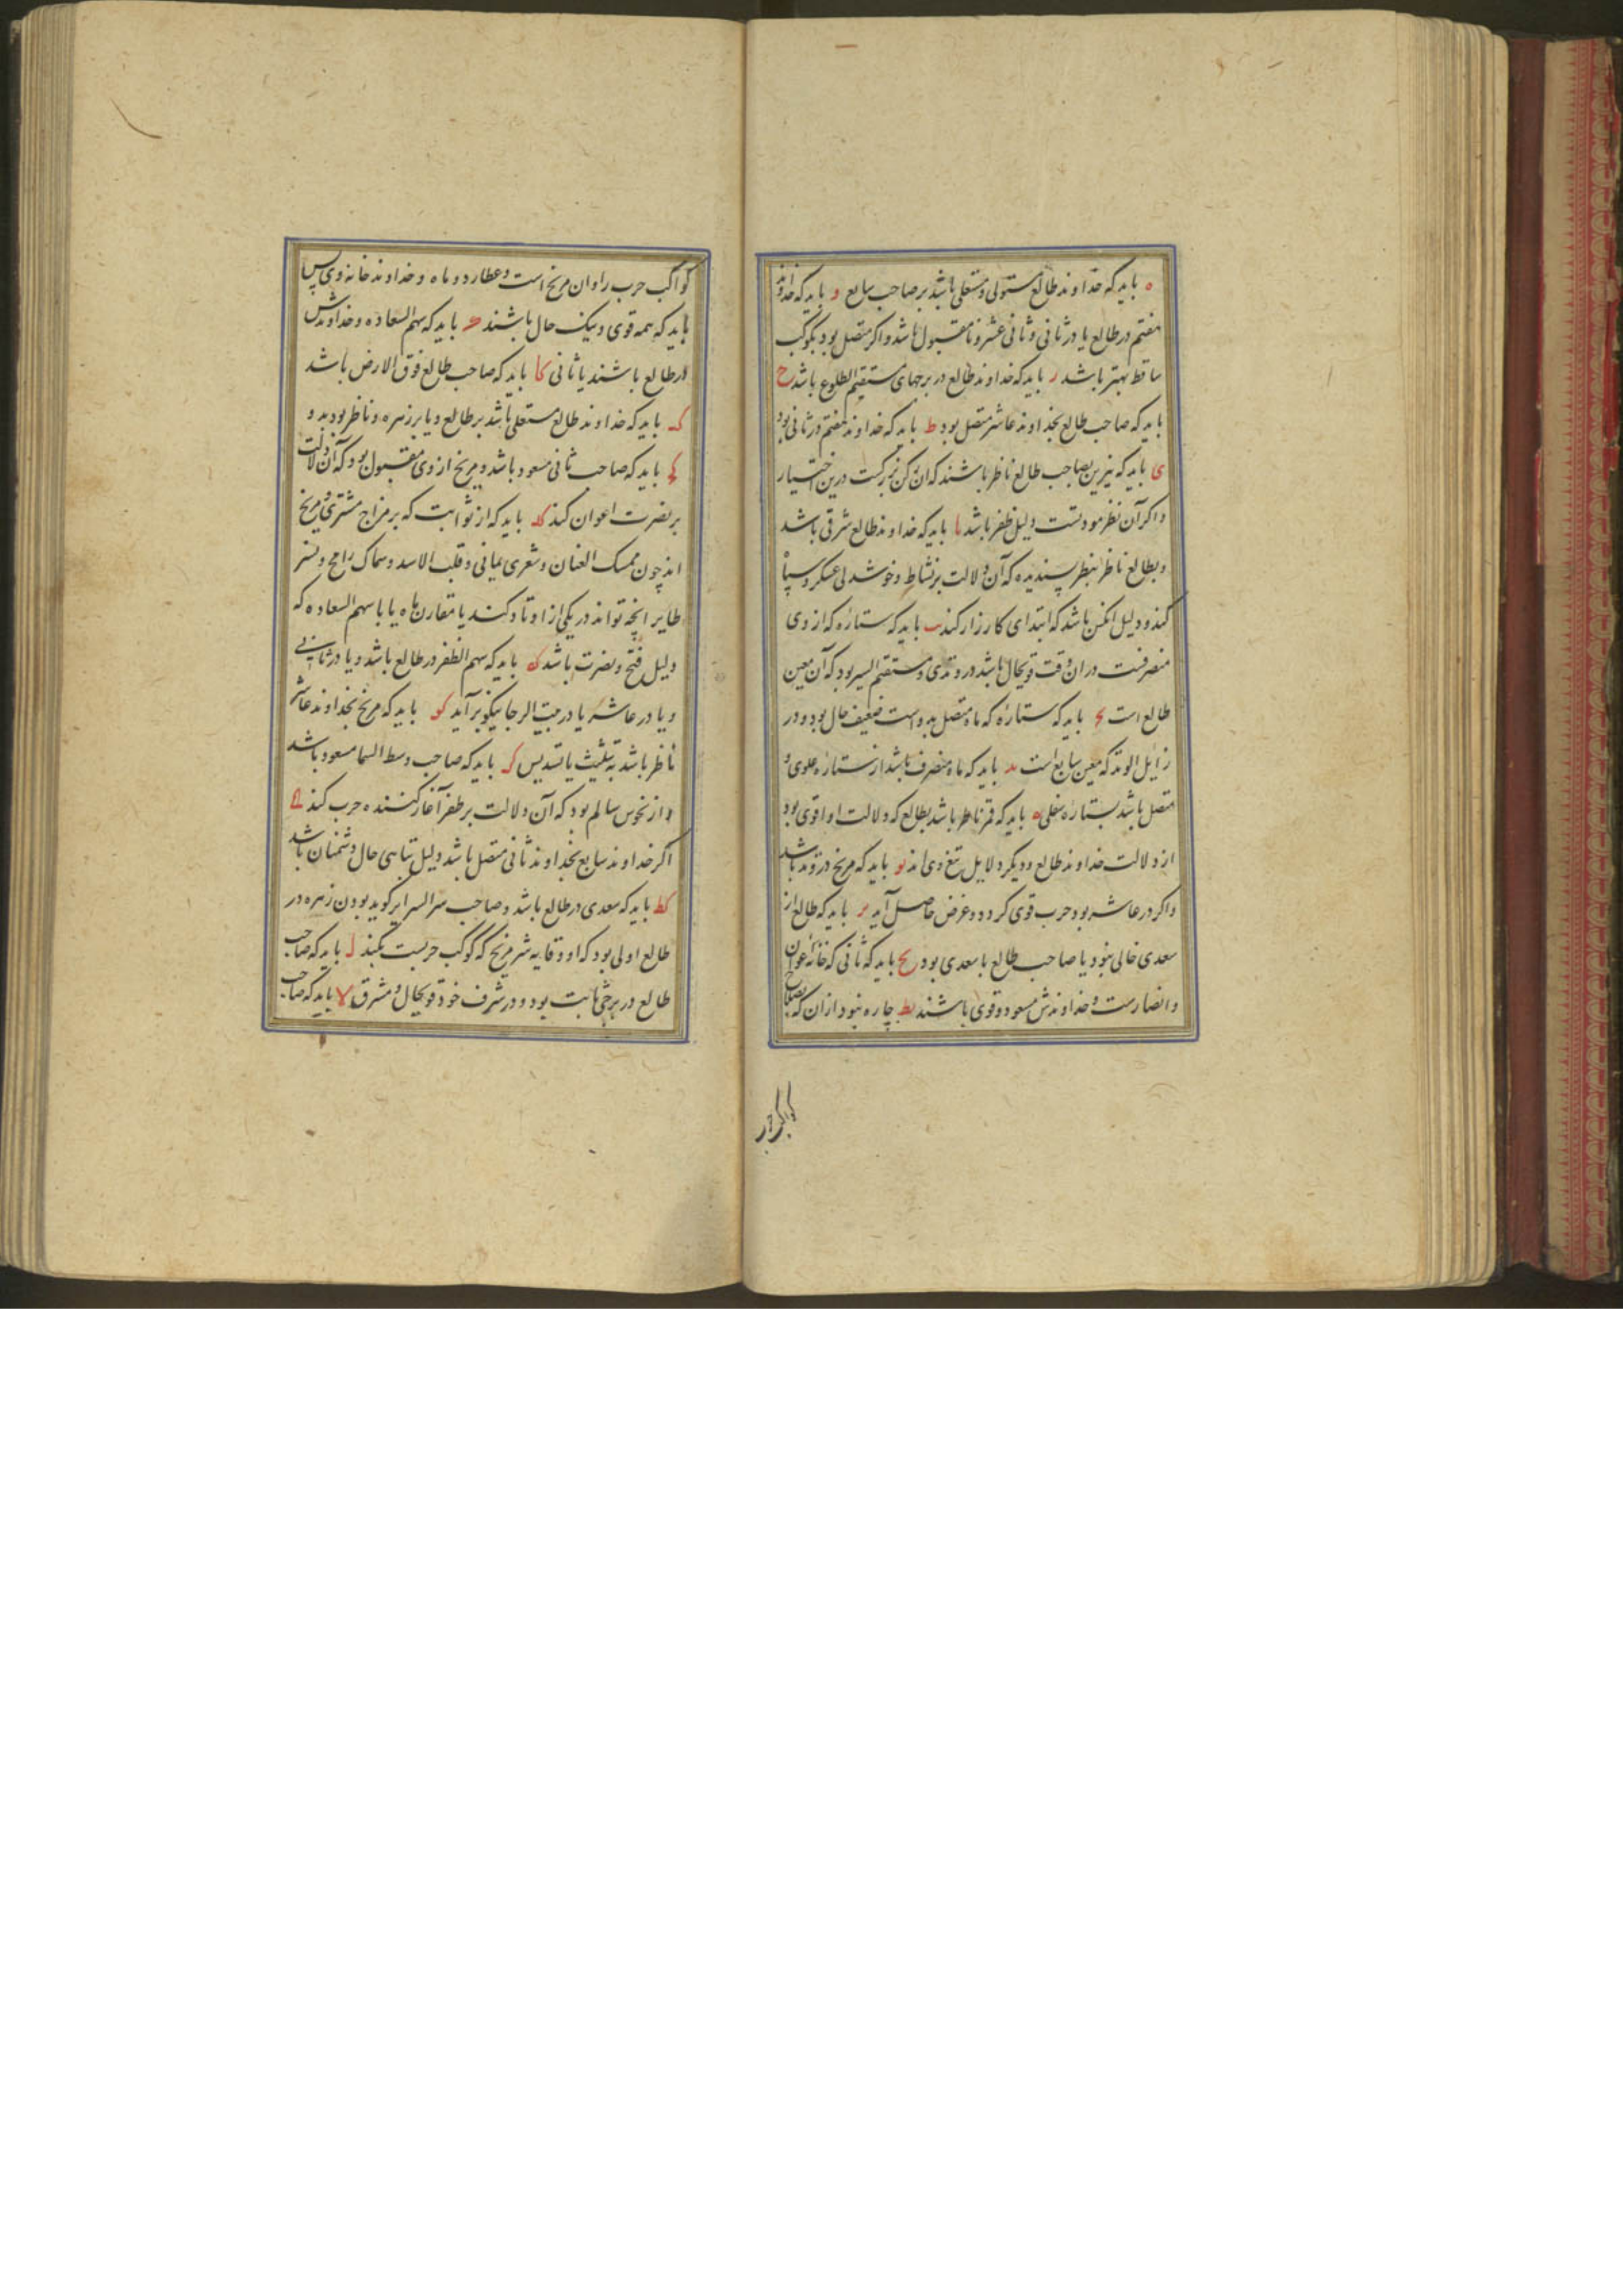 ه باید که خداوند طالع مستولی و مستعلی باشد بر صاحب سابع و باید که خداوند
هفتم در طالع یا در ثانی و ثانی عشر و نامقبول باشد و اگر متصل بود بکوکب
ساقط بهتر باشد ز باید که خداوند طالع در برجهای مستقیم الطلوع باشد ح
باید که صاحب طالع بخداوند عاشر متصل بود ط باید که خداوند هفتم در ثانی بود
ی باید که نیرین بصاحب طالع ناظر باشند که آن رکن بزرگست درین اختیار
و اکر آن نظر مودتست دلیل ظفر باشد یا باید که خداوند طالع شرقی باشد
و بطالع ناظر بنظر پسندیده که آن دلالت بر نشاط و خوشدلی عسکر و سپاه
کند و دلیل آنکس باشد که ابتدای کارزار کند یب باید که ستاره که از وی
منصرفست در آن وقت قویحال باشد در وتدی و مستقیم السیر بود که آن معین
طالع است یج باید که ستارهٔ که ماه متصل بدو است ضعیف حال بود و در
زایل الوتد که معین سابع است ید باید که ماه منصرف باشد از ستاره علوی و
متصل باشد بستاره سفلی یه باید که قمر ناظر باشد بطالع که دلالت او اقوی بود
از دلالت خداوند طالع و دیکر دلایل تبع وی اند یو باید که مریخ در وتد باشد
و اکر در عاشر بود حرب قوی کردد و غرض حاصل آید یز باید که طالع از
سعدی خالی نبود یا صاحب طالع با سعدی بود یح باید که ثانی که خانه اعوان
و انصارست و خداوندش مسعود و قوی باشند یط چاره نبود از آن که بصلاح
کواکب حرب
کواکب حرب را و آن مریخ است و عطارد و ماه و خداوند خانه وی پس
باید که همه قوی و نیک حال باشند ک باید که سهم السعاده و خداوندش
در طالع باشند یا ثانی کا باید که صاحب طالع فوق الارض باشد
کب باید که خداوند طالع مستعلی باشد بر طالع و یا بر زهره و ناظر بود بدو
کج باید که صاحب ثانی مسعود باشد و مریخ از وی مقبول بود که آن دلالت
بر نصرت اعوان کند کد باید که از ثوابت که بر مزاج مشتری و مریخ
اند چون ممسک العنان و شعری یمانی و قلب الاسد و سماک رامح و نسر
طایر آنچه تواند در یکی از اوتاد کند یا مقارن ماه یا با سهم السعاده که
دلیل فتح و نصرت باشد که باید که سهم الظفر در طالع باشد و یا در ثانی
و یا در عاشر یا در بیت الرجا نیکو برآید کو باید که مریخ بخداوند عاشر
ناظر باشد بتثلیث یا تسدیس کز باید که صاحب وسط السما مسعود باشد
و از نحوس سالم بود که آن دلالت بر ظفر آغاز کننده حرب کند کح
اگر خداوند سابع بخداوند ثانی متصل باشد دلیل تباهی حال دشمنان باشد
کط باید که سعدی در طالع باشد و صاحب سر السرایر کوید بودن زهره در
طالع اولی بود که او وقایه شر مریخ که کوکب حربست بکند ل باید که صاحب
طالع در برجی ثابت بود و در شرف خود قویحال و مشرق لا باید که صاحب